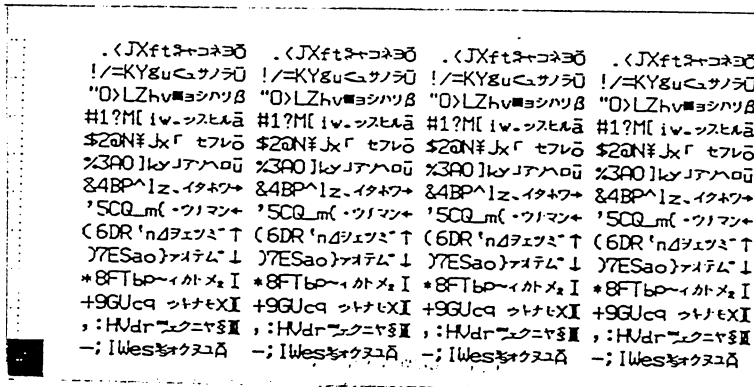 .<JXft ャコネヨö .<JXft ャコネヨö .<JXft ャコネヨö .<JXft ャコネヨö
!/=KYgu<ュサノラü !/=KYgu<ュサノラü !/=KYgu<ュサノラü !/=KYgu<ュサノラü
"0>LZhv■ョシハリß "0>LZhv■ョシハリß "0>LZhv■ョシハリß "0>LZhv■ョシハリß
#1?M[iw。ッスヒルā #1?M[iw。ッスヒルā #1?M[iw。ッスヒルā #1?M[iw。ッスヒルā
$2@N¥jx「 セフレō $2@N¥jx「 セフレō $2@N¥jx「 セフレō $2@N¥jx「 セフレō
%3AO]ky」アソヘロū %3AO]ky」アソヘロū %3AO]ky」アソヘロū %3AO]ky」アソヘロū
&4BP^lz、イタホワ→ &4BP^lz、イタホワ→ &4BP^lz、イタホワ→ &4BP^lz、イタホワ→
'5CQ_m{・ウチマン← '5CQ_m{・ウチマン← '5CQ_m{・ウチマン← '5CQ_m{・ウチマン←
(6DR`n⊿ヲエツミ゛↑ (6DR`n⊿ヲエツミ゛↑ (6DR`n⊿ヲエツミ゛↑ (6DR`n⊿ヲエツミ゛↑
)7ESao}ァオテム゜↓ )7ESao}ァオテム゜↓ )7ESao}ァオテム゜↓ )7ESao}ァオテム゜↓
*8FTbp~ィカトメ₂Ⅰ *8FTbp~ィカトメ₂Ⅰ *8FTbp~ィカトメ₂Ⅰ *8FTbp~ィカトメ₂Ⅰ
+9GUcq ゥキナモXⅡ +9GUcq ゥキナモXⅡ +9GUcq ゥキナモXⅡ +9GUcq ゥキナモXⅡ
,:HVdr ェクニヤ§Ⅲ ,:HVdr ェクニヤ§Ⅲ ,:HVdr ェクニヤ§Ⅲ ,:HVdr ェクニヤ§Ⅲ
-;IWes ォケヌユÄ -;IWes ォケヌユÄ -;IWes ォケヌユÄ -;IWes ォケヌユÄ